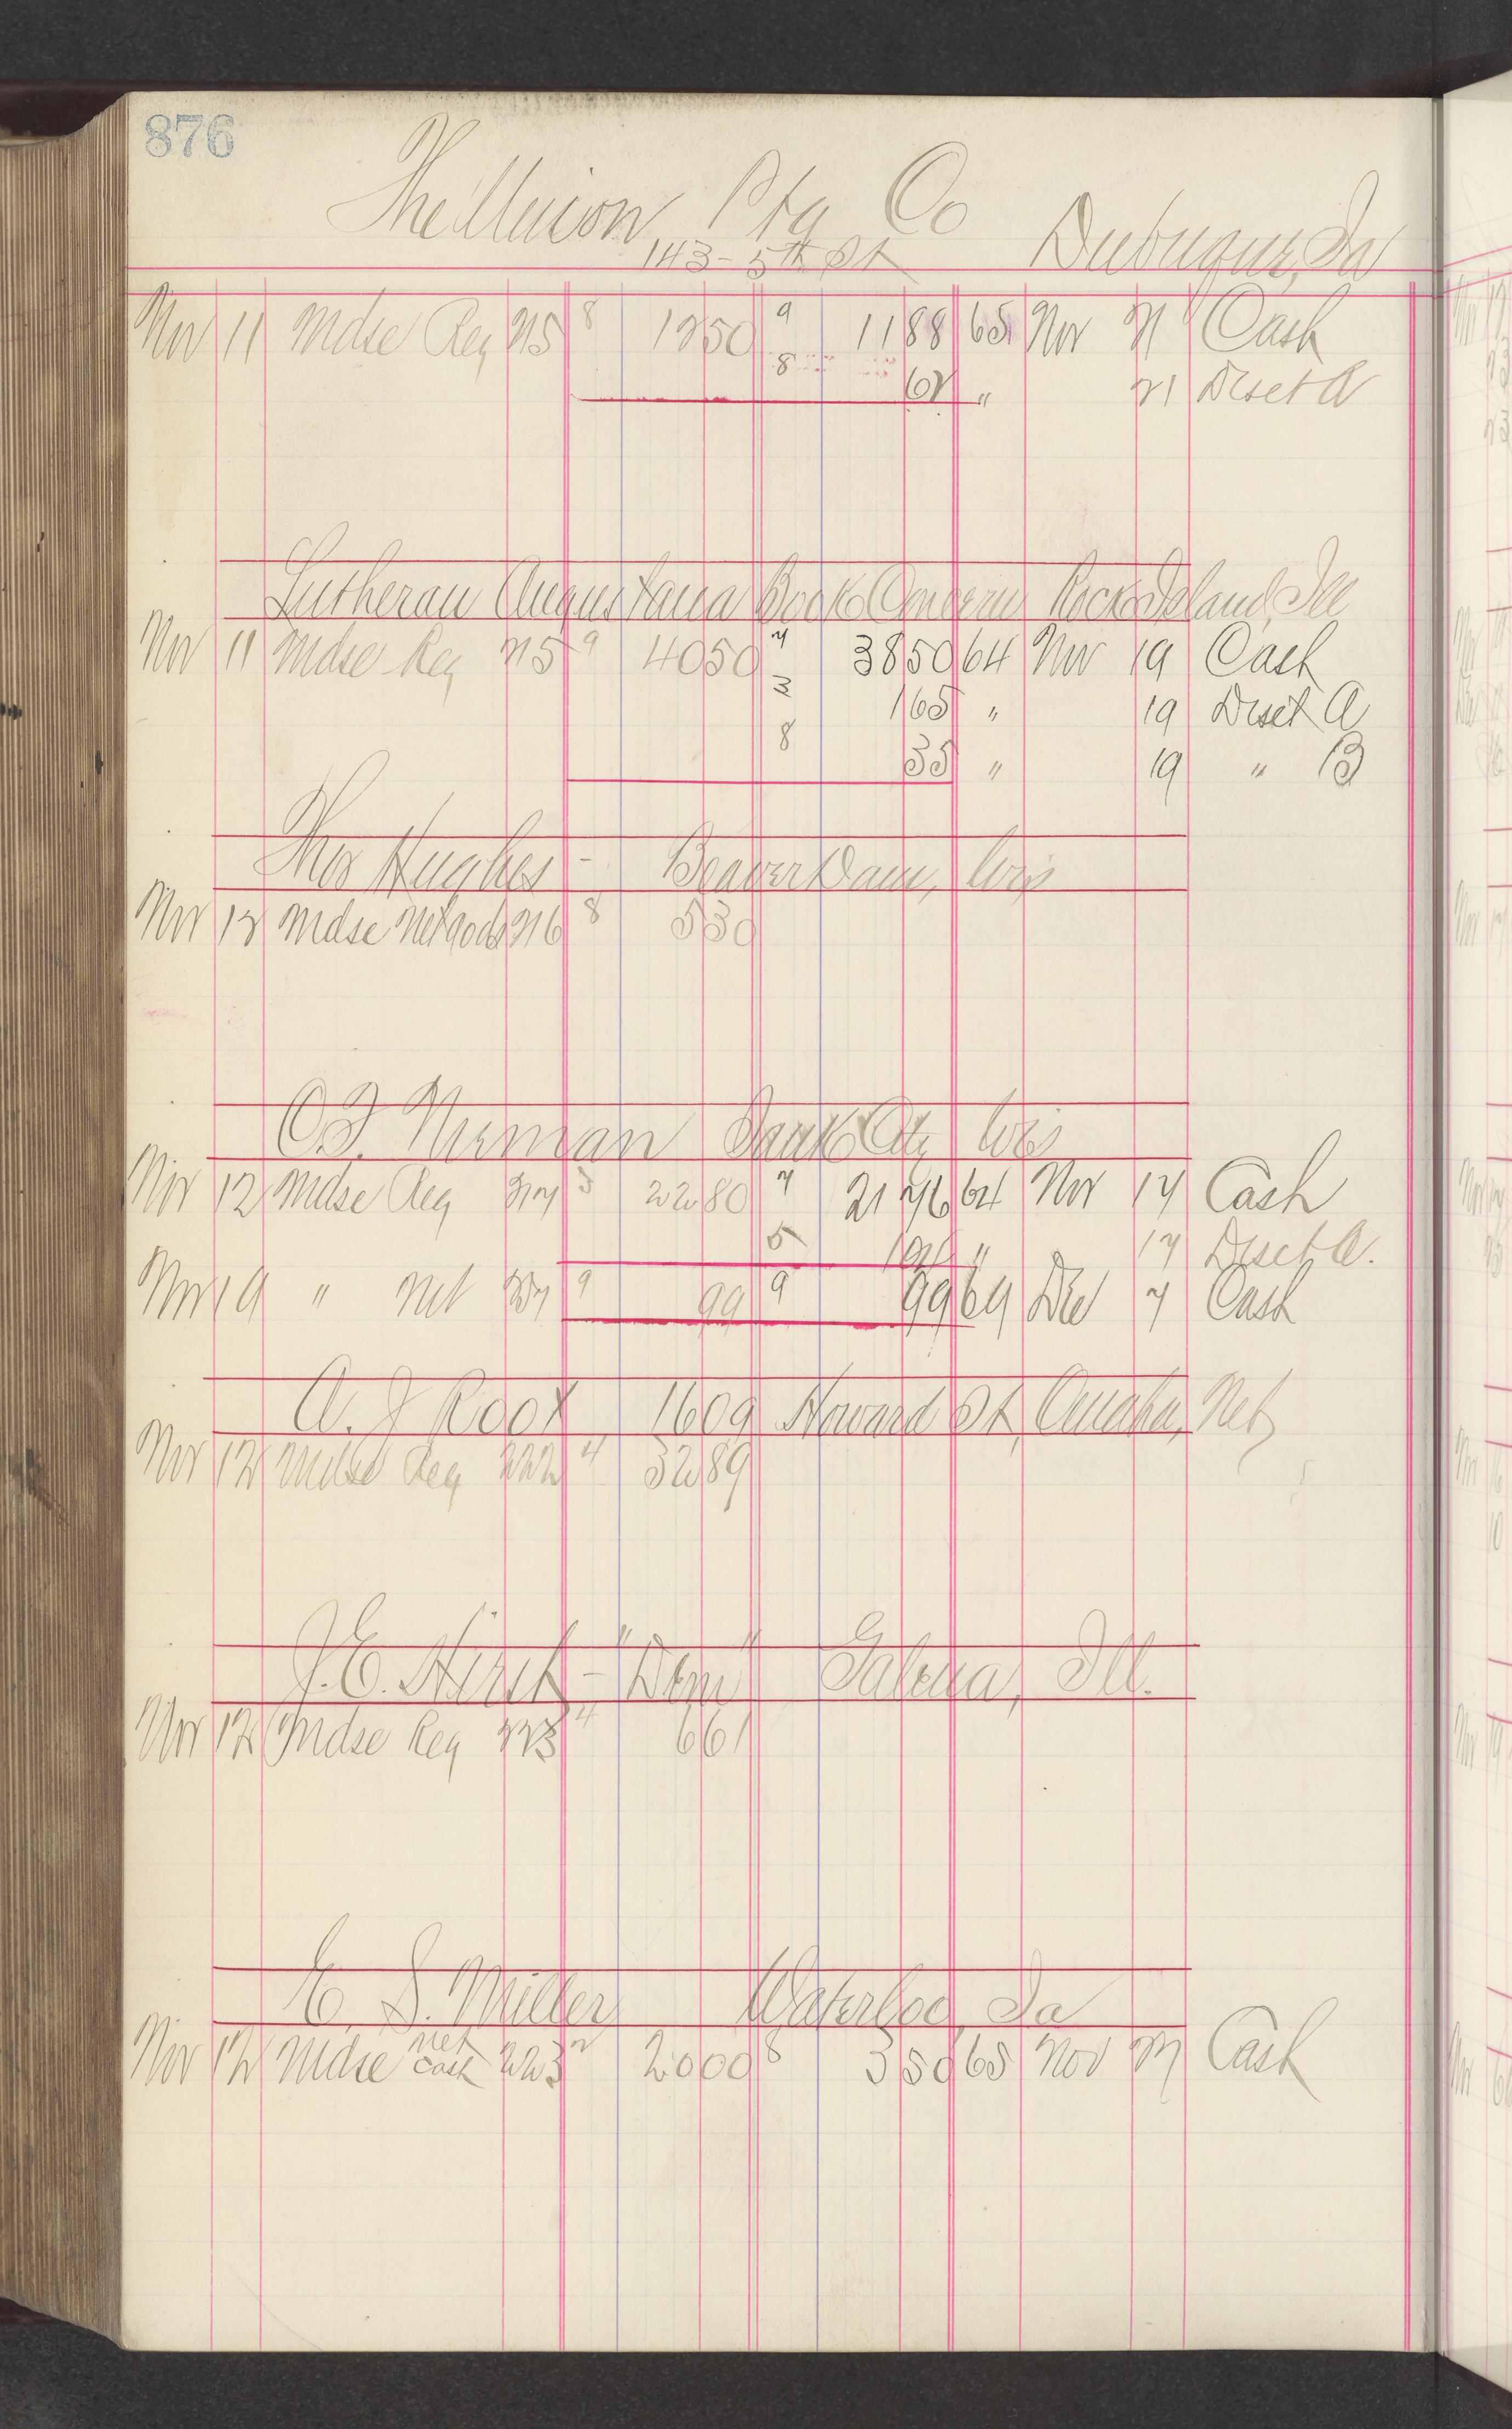 876
The Union Ptg Co Dubuque, Ia
143 - 5th St
Nov 11 Mdse Reg 215 8 1250 9 1188 65 Nov 21 Cash
8 62 " 21 Disct A
Lutheran Augustana Book Concern Rock Island, Ill
Nov 11 Mdse Reg 215 9 4050 7 3850 64 Nov 19 Cash
3 165 " 19 Disct A
8 35 " 19 " B
Thos Hughes - Beaver Dam, Wis
Nov 12 Mdse Net gods 216 8 530
O.F. Neuman Sauk City Wis
Nov 12 Mdse Reg 217 5 2280 7 2176 64 Nov 17 Cash
5 104 " 17 Disct A.
Nov 19 " Net 9 99 9 99 69 Dec 7 Cash
A. J Root, 1609 Howard St, Omaha, Neb
Nov 12 Mdse Reg 222 4 3289
J.E. Hirst - "Dem" Galena, Ill.
Nov 12 Mdse Reg 223 4 661
E. S. Miller Waterloo, Ia
Nov 12 Mdse net cash 223 2 2000 8 350 65 Nov 27 Cash